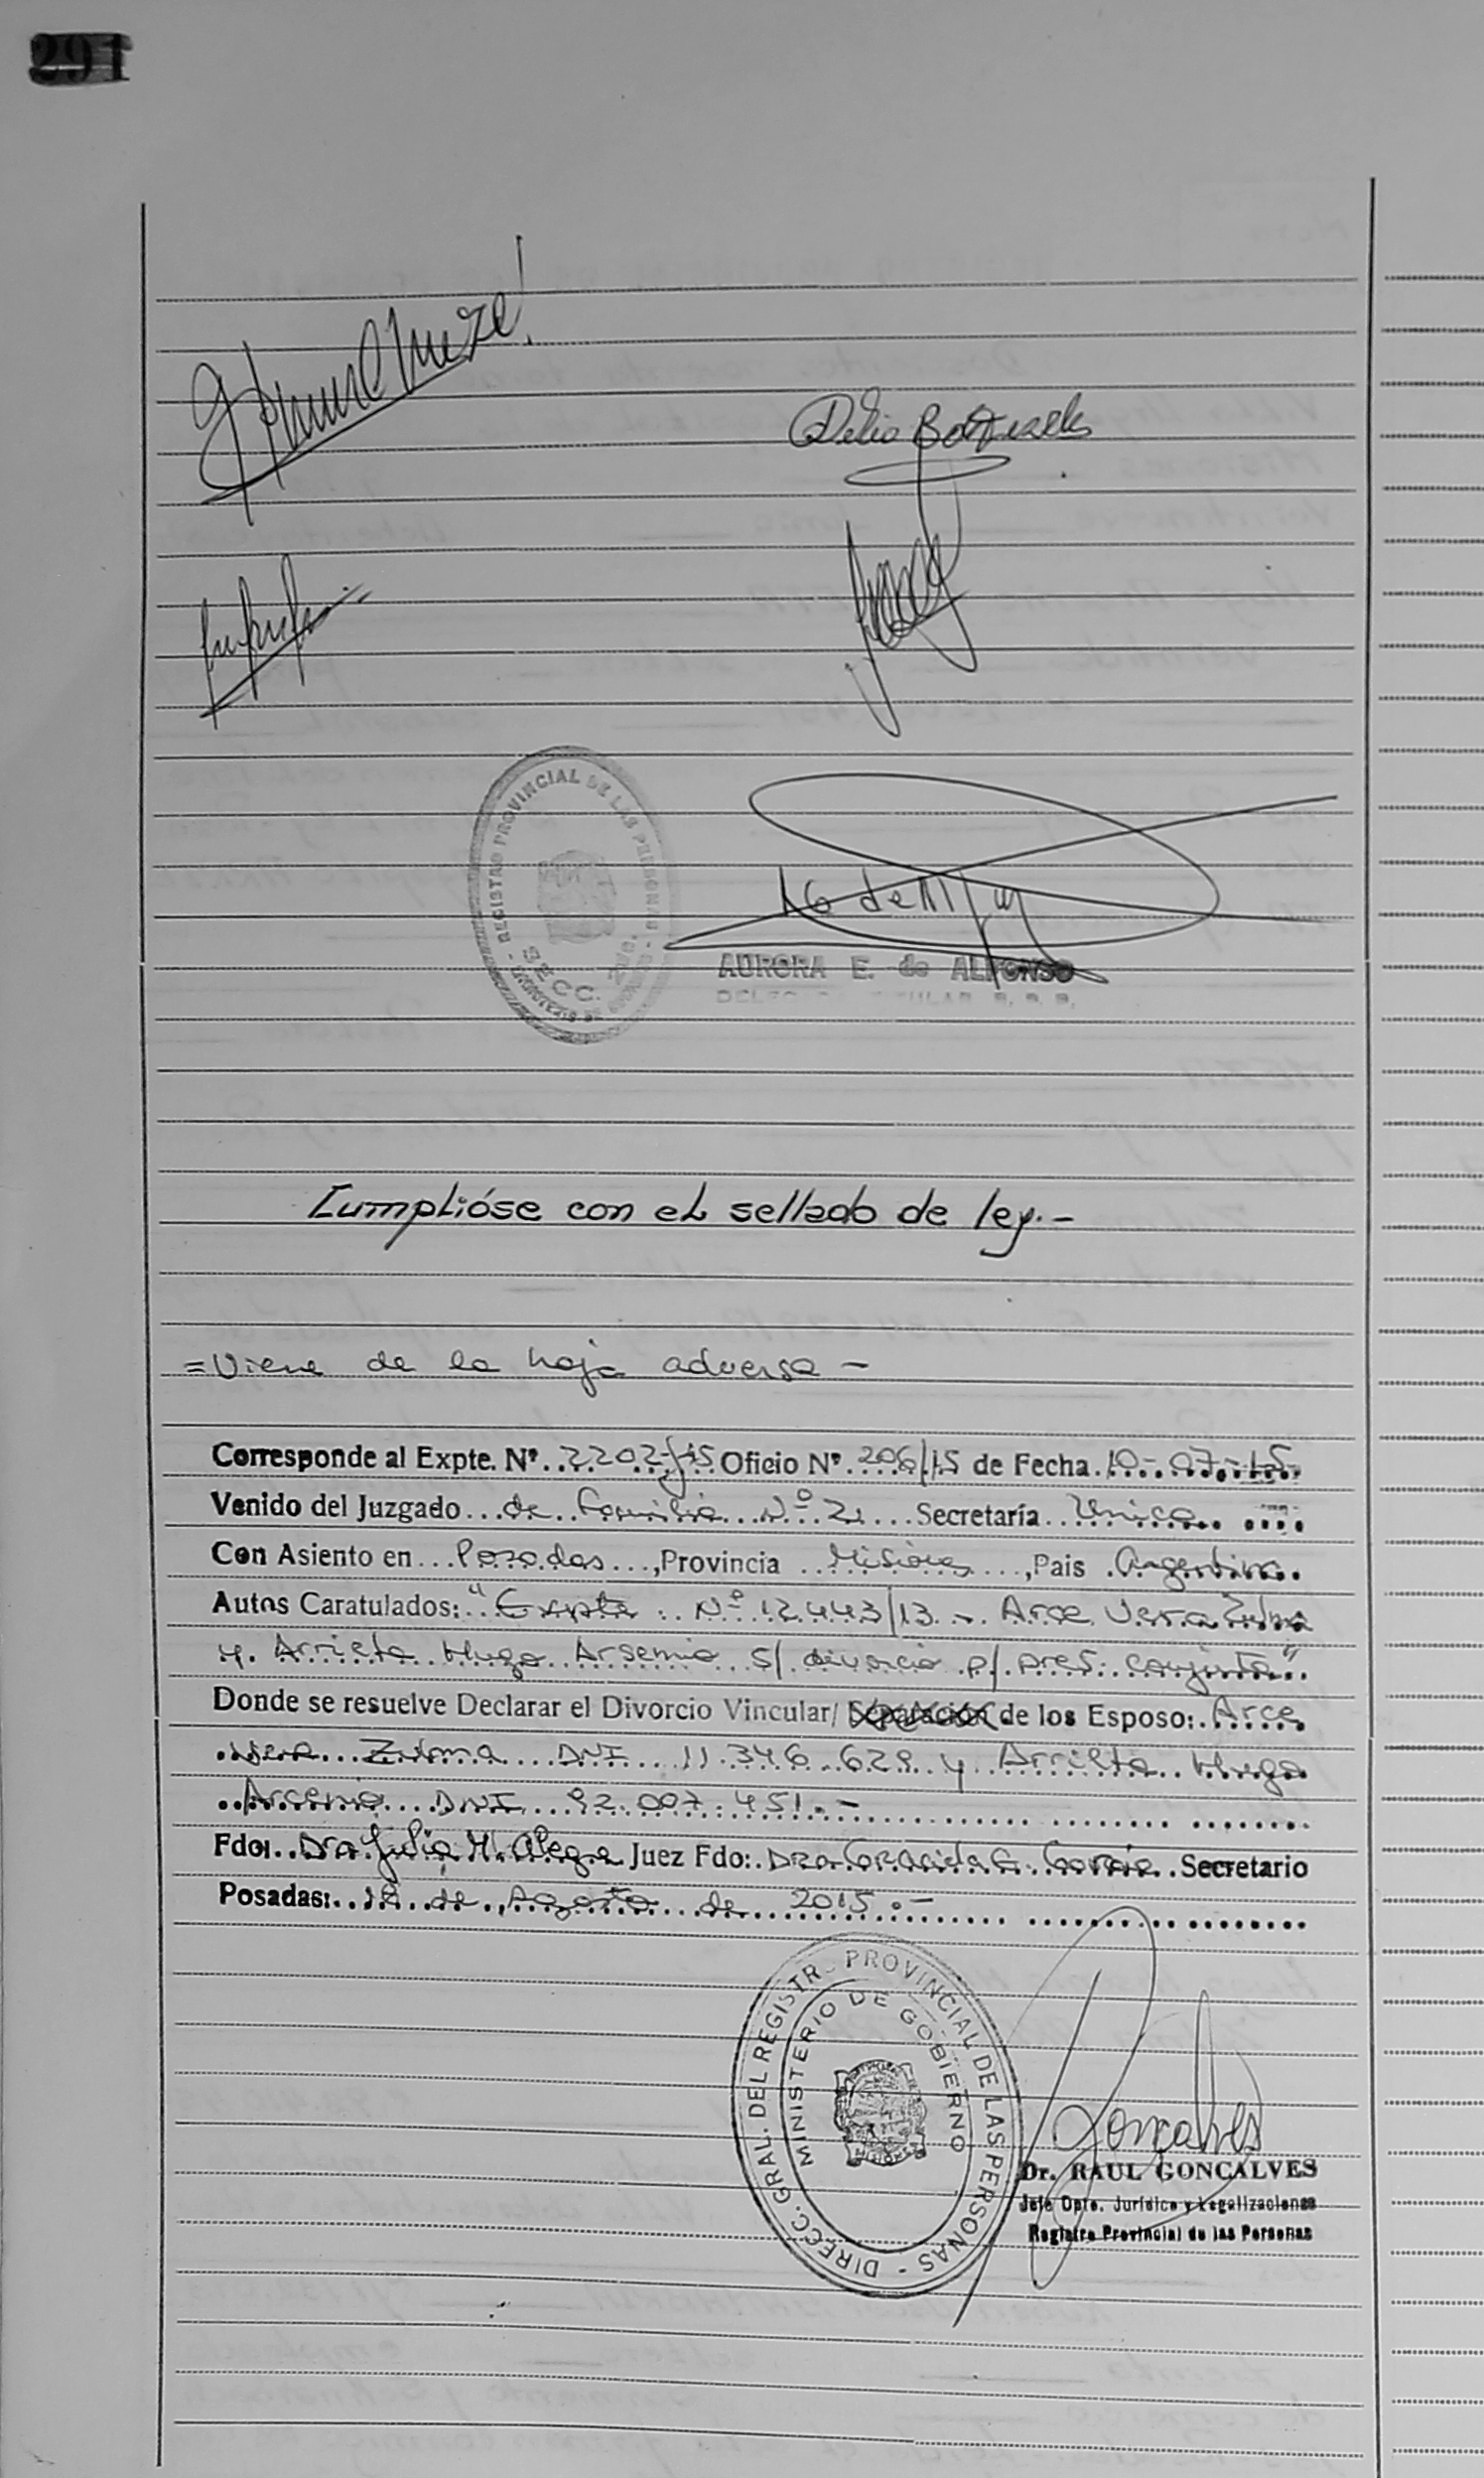 291
Delio
REGISTRO PROVINCIAL DE LAS PERSONAS
SECC.
AURORA E. de ALFONSO
Cumplióse con el sellado de ley.-
=Viene de la hoja adversa -
Corresponde al Expte. Nº 2202-J-15 Oficio Nº 206/15 de Fecha 10-07-15
Venido del Juzgado de Familia Nº 2 Secretaría Unica
Con Asiento en Posadas, Provincia Misiones, Pais Argentina.
Autos Caratulados: "Expte. Nº 12.443/13 - Arce Vera Zulma
y Arrieta Hugo Arsemio s/ divorcio p/ pres. conjunta"
Donde se resuelve Declarar el Divorcio Vincular/ Separación de los Esposo: Arce
Vera Zulma DNI 11.346.629 y Arrieta Hugo
Arsemio DNI 92.007.451.-
Fdo: Dra Julia M. Alegre Juez Fdo: Dra Graciela Secretario
Posadas: de Agosto de 2015.-
DIRECC. GRAL. DEL REGISTR. PROVINCIAL DE LAS PERSONAS -
MINISTERIO DE GOBIERNO
Goncalves
Dr. RAUL GONCALVES
Jefe Dpto. Jurídico y Legalizaciones
Registro Provincial de las Personas